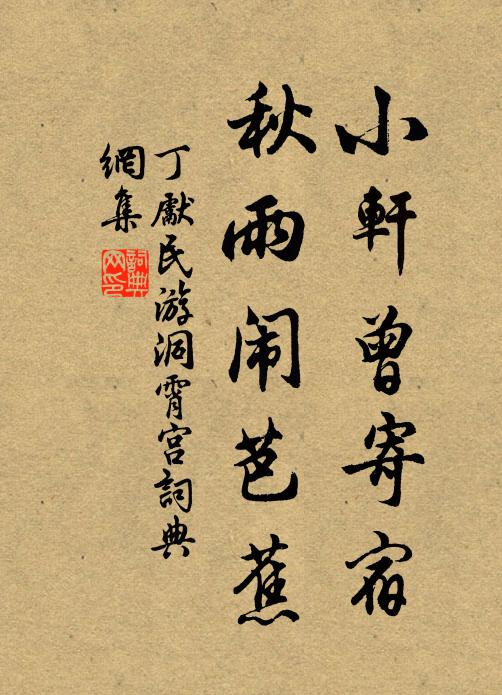 小軒曾寄宿
秋雨闹芭蕉
丁獻民游洞霄宮詞典
網集
詞典网印